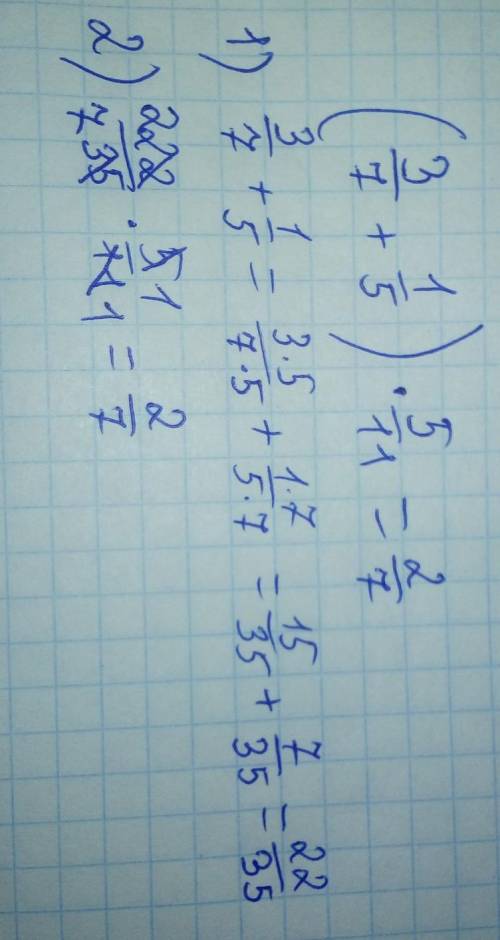 (3/7 + 1/5) · 5/11 = 2/7
1) 3/7 + 1/5 = 3·5/7·5 + 1·7/5·7 = 15/35 + 7/35 = 22/35
2) 22 2/7 35 · 5 1/11 1 = 2/7